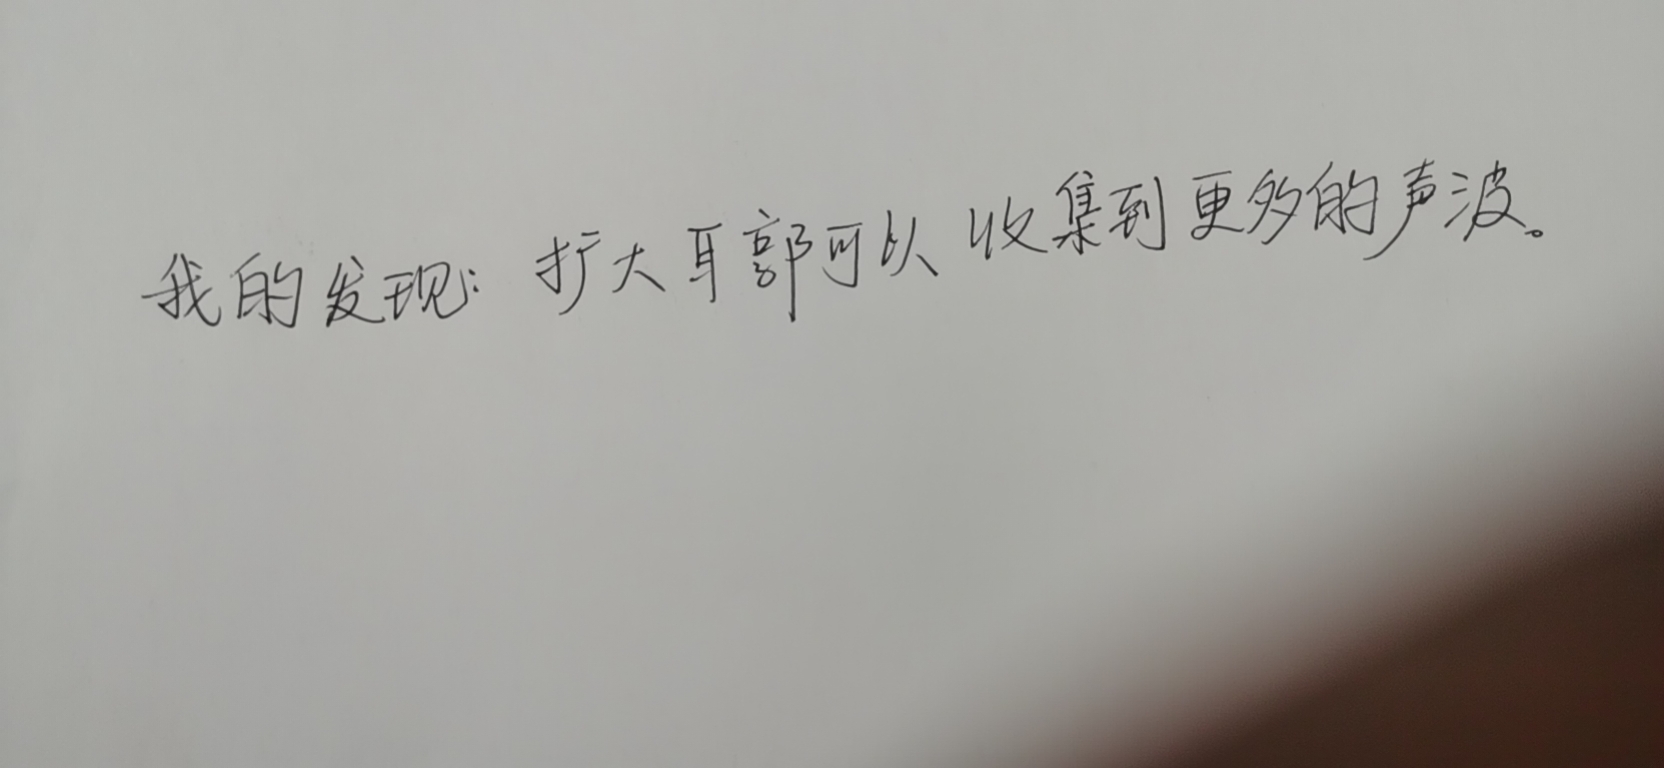 我的发现：扩大耳郭可以收集到更多的声波。